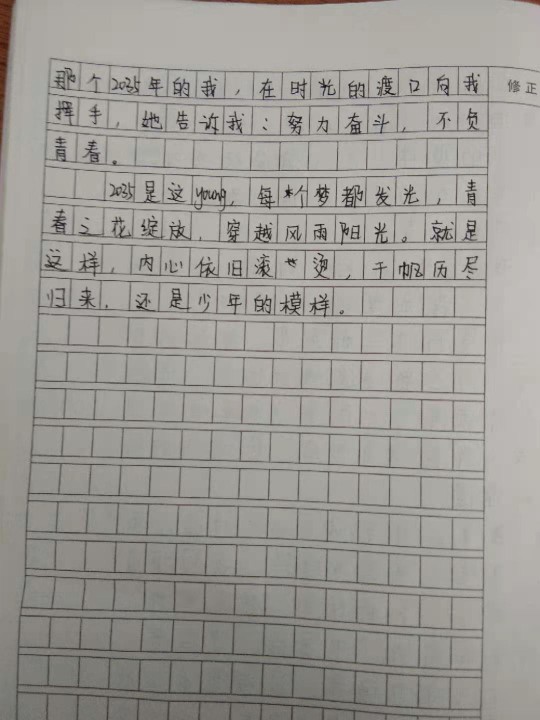 那个2035年的我，在时光的渡口向我
挥手，她告诉我：努力奋斗，不负
青春。
2035是这young，每个梦都发光，青
春之花绽放，穿越风雨阳光。就是
这样，内心依旧滚烫，千帆历尽
归来，还是少年的模样。
修正